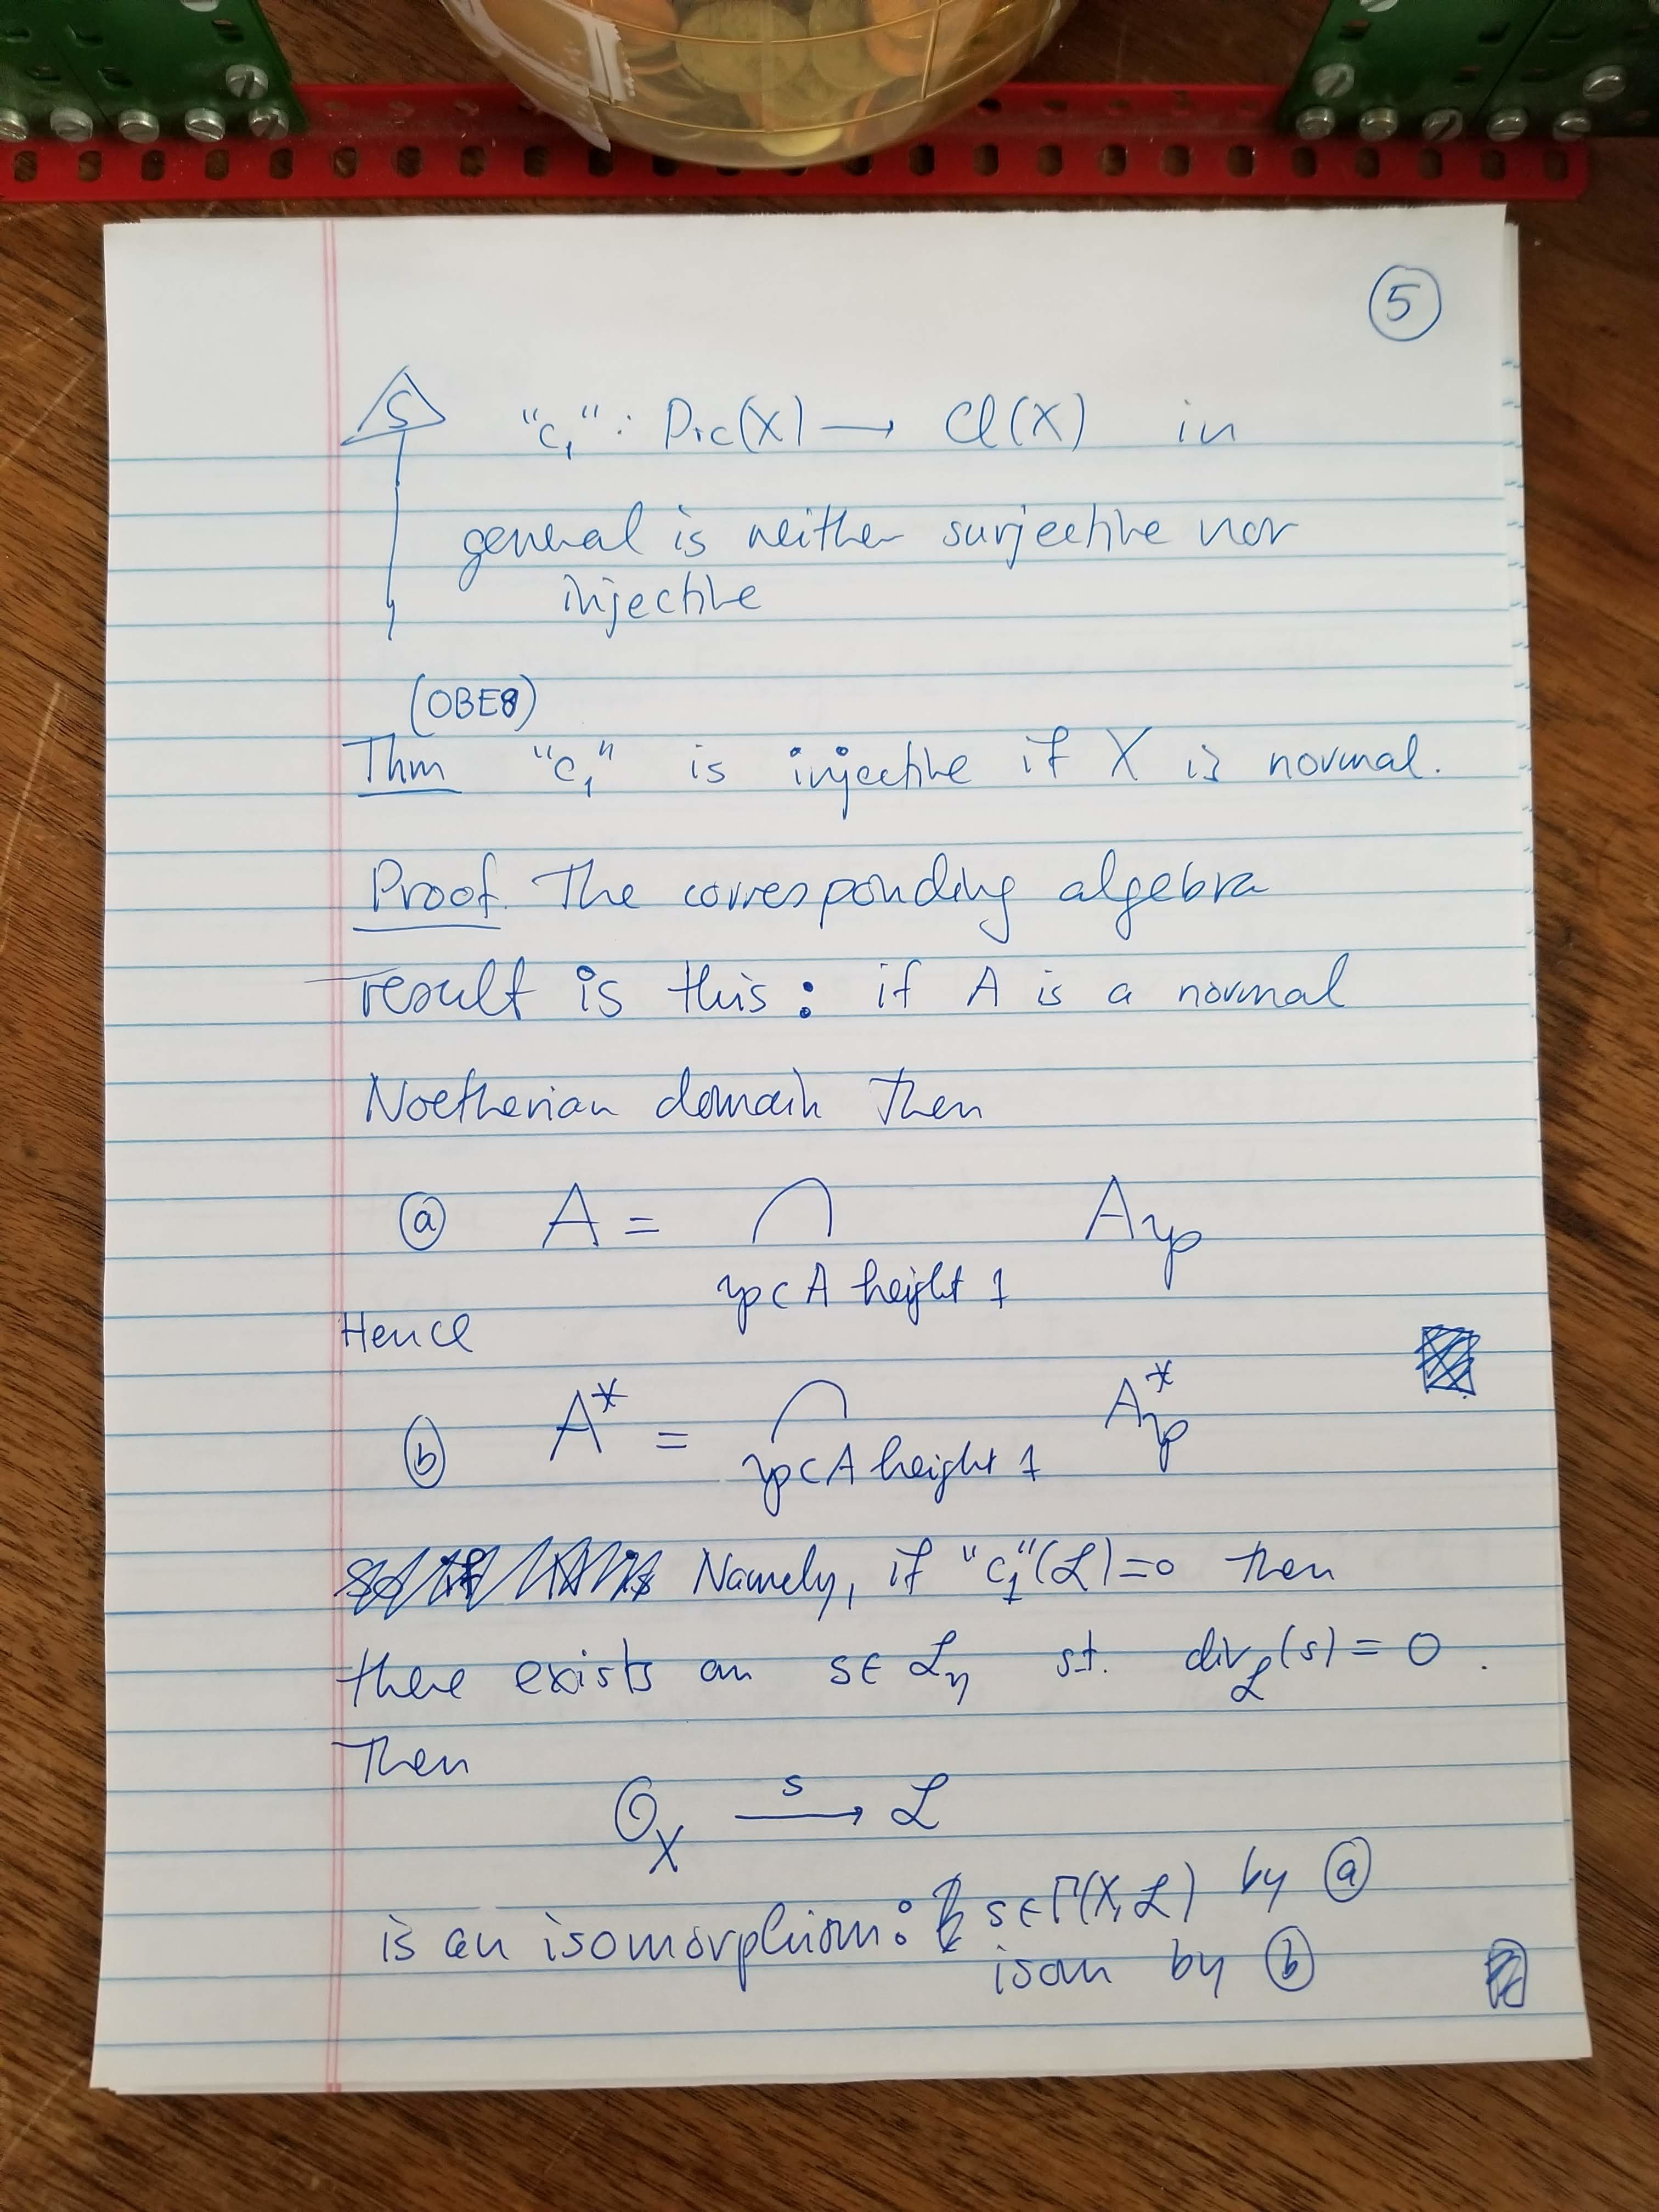 5
S "c₁" : Pic(X) → Cl(X) in
general is neither surjective nor
injective
(0BE8)
Thm "c₁" is injective if X is normal.
Proof. The corresponding algebra
result is this : if A is a normal
Noetherian domain then
ⓐ A = ∩ A𝔭
𝔭 ⊂ A height 1
Hence
ⓑ A* = ∩ A𝔭*
𝔭 ⊂ A height 1
Namely, if "c₁"(ℒ) = 0 then
there exists an s ∈ ℒη st. divℒ(s) = 0 .
Then
𝒪X →ˢ ℒ
is an isomorphism : s ∈ Γ(X, ℒ) by ⓐ
isom by ⓑ